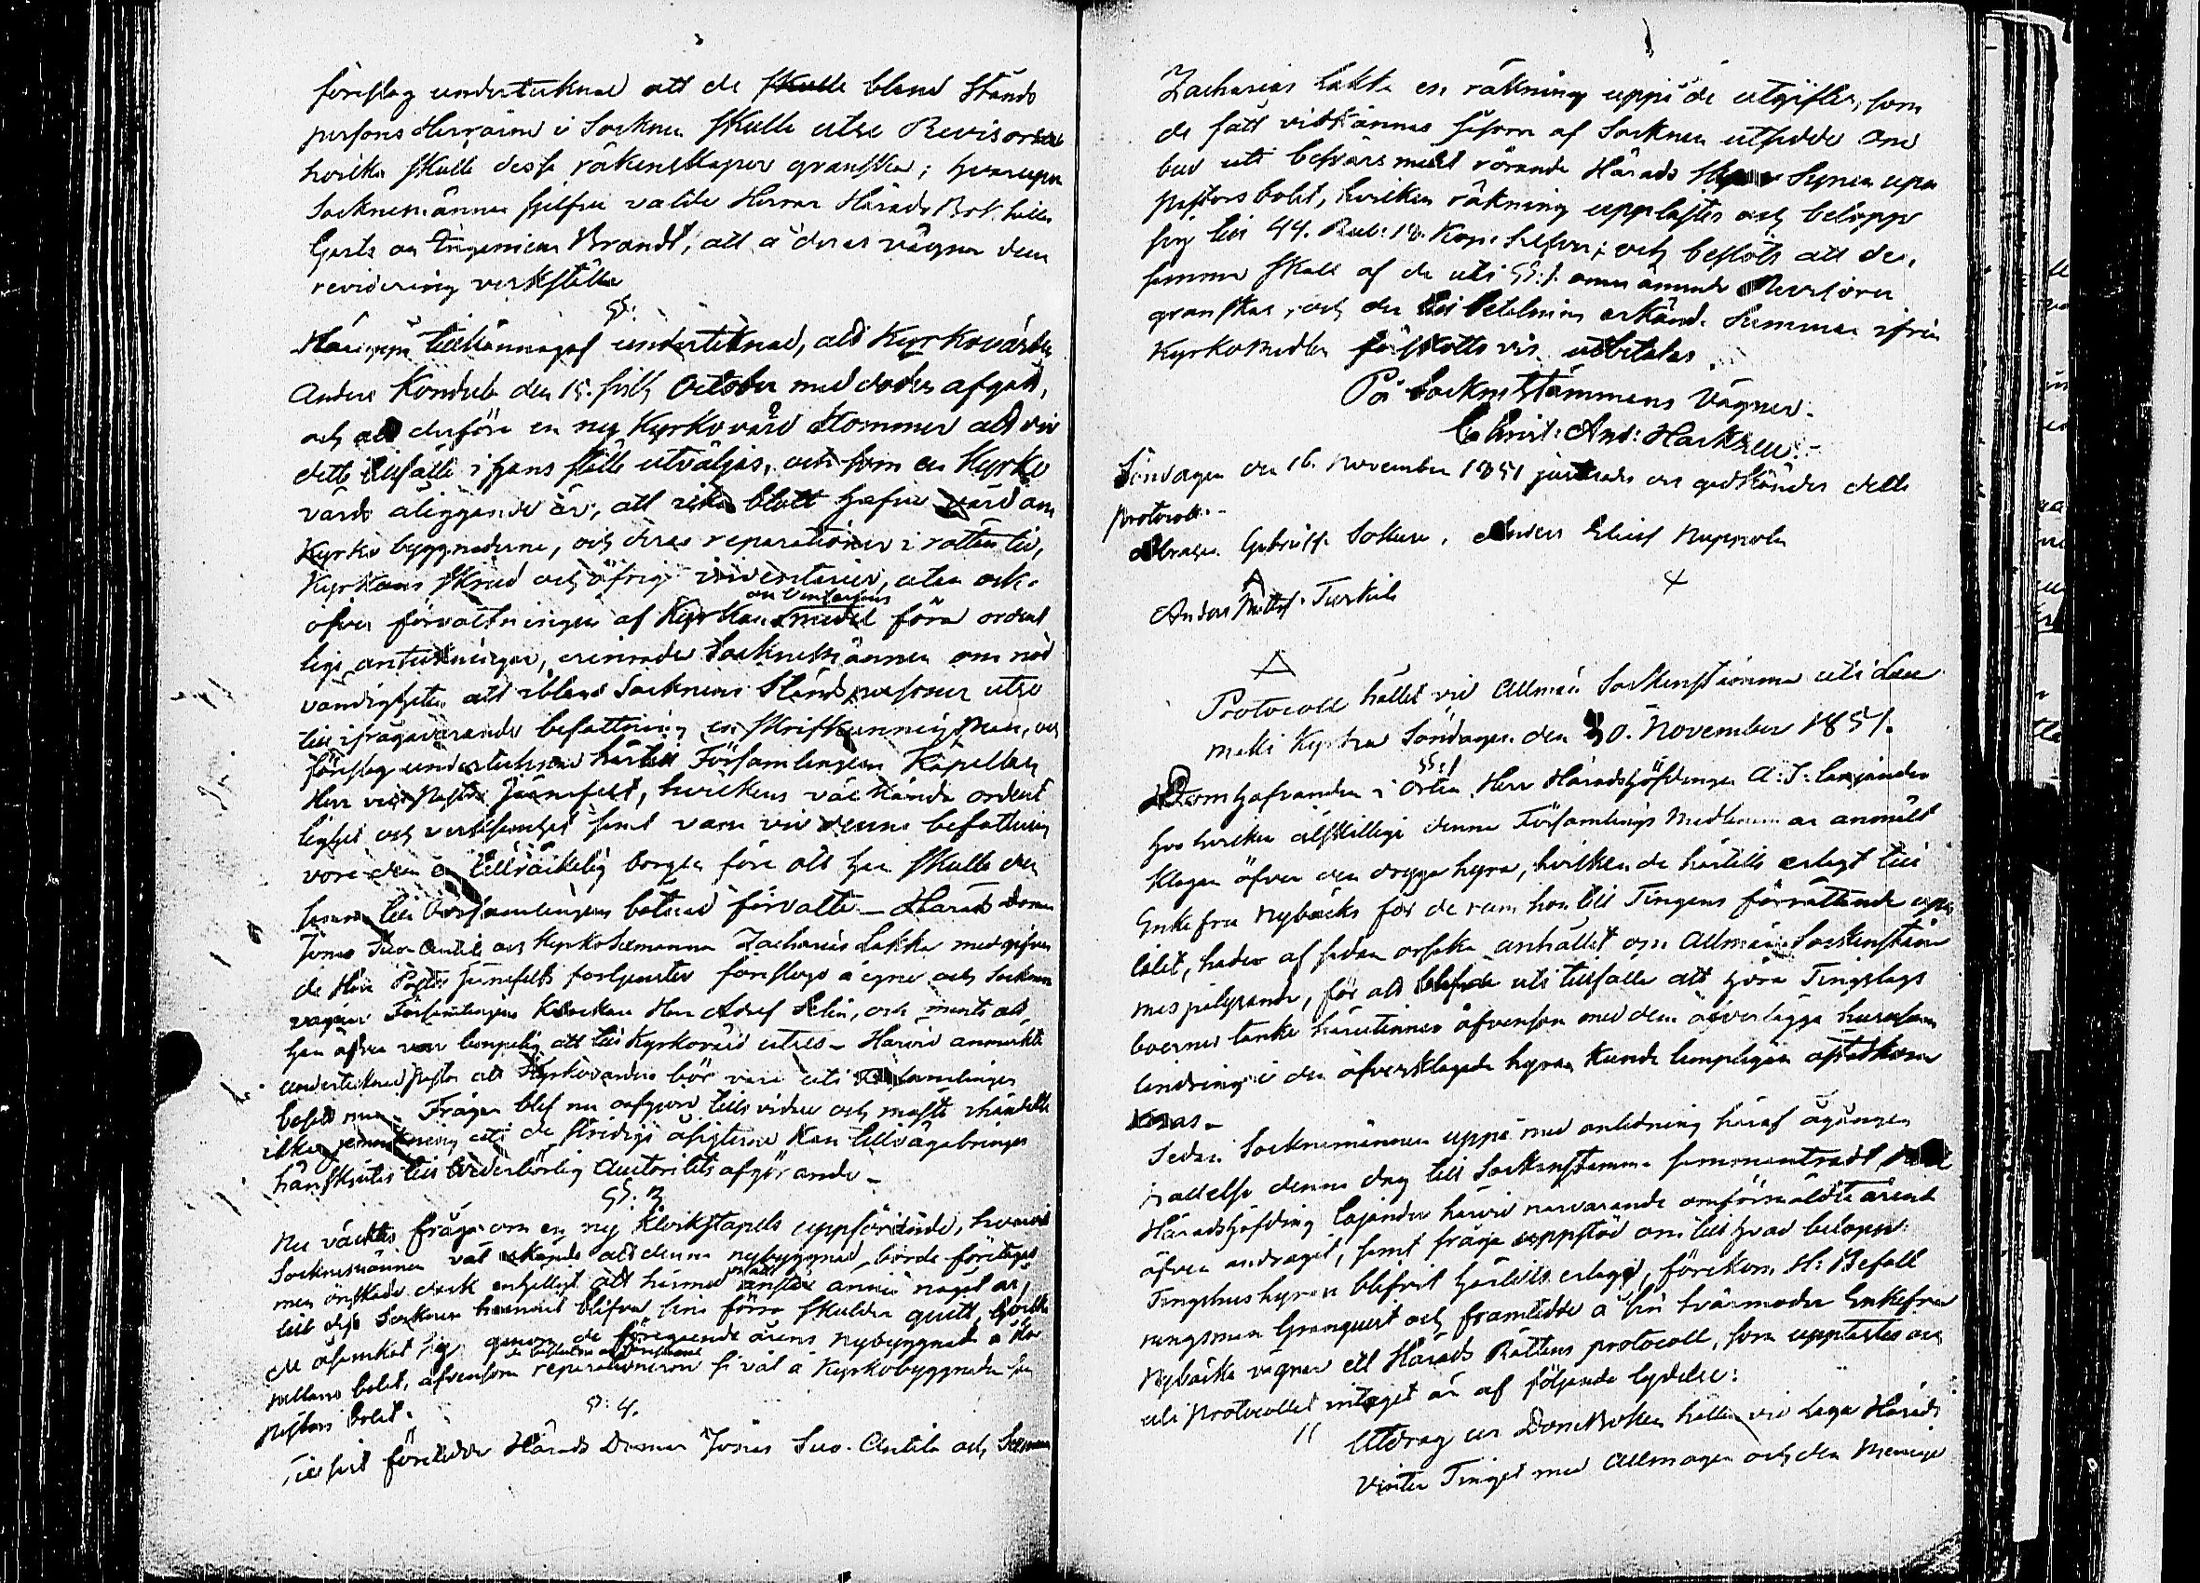 föreslog undertecknad att de skulle bland Stånds
persons Herrarne i Socknen skulle utse Revisorer
hvilka skulle dessa räkenskaper granska; hvarupå
Socknemännen sjelfve valde Herrar Härads Bok hålla
och Ingenieur Brandt, att å deras vägnar den
revidering verkställa
§:
Häruppå tillkännagaf undertecknad, att Kyrkovärden
Anders den 15. October med döden afgått,
och att derföre en ny Kyrkovärd kommer att vid
detta tillfälle i hans ställe utväljas, och som en Kyrko
värds åliggande är, att icke blott hafva vård om
Kyrko byggnaderne, och deras reparationer i rättan tid,
Kyrkans skrud och öfriga inventarier, utan ock
öfver förvaltningen af Kyrkans medel föra ordent
liga anteckningar, erinrades Socknemännen om nöd
vändigheten att ibland Socknens Ståndspersoner utse
till ifrågavarande befattning en skrifkunnig man, och
föreslog undertecknad härtill Församlingens Kapellan
Herr vice Pastor Järnefelt, hvilkens väl kända ordent
lighet och verksamhet samt vana vid denna befattning
vore den tillräckelig borgen före att han skulle den
samma till Församlingens båtnad förvalta – Härads Domaren
Jonas Suo-Antila och Kyrko Sexmannen Zacharias Lakka med gifvan
de Herr Pastor Järnefelts förtjenster föreslogo å egne och Socknen
vägnar Församlingens Klockare Herr Adolf Selin, och mente att
han äfven vore lempelig att till Kyrkovärd utses – Härvid anmärkte
undertecknad Pastor att Kyrkovärden bör vara uti Församlingen
bofast man. Frågan blef nu oafgjord tills vidare och måste ihändelse
icke jemnkning uti de stridiga åsigterne kan tillvägabringas
hänskjutas till Vederbörlig Auctoritets afgörande –
§: 3
Nu väcktes fråga om en ny Klockstapels uppförande, hvarvid
Socknemännen väl erkände att denna nybyggnad borde företagas
men önskade dock enhelligt att härmed måtte anstå ännu något år,
till dess Socknen hunnit blifva sine förra skulder quitt, hvilka
de åsamkat sig genom de föregående årens nybyggnad å Kap
pellans bolet, äfvensom reparationerne så väl å Kyrkobyggnaden som
Pastors bolet.
§: 4.
Till sist företrädde Härads Domaren Jonas Suo-Antila och Sexman
Zacharias Lakka en räkning uppå de utgifter, som
de fått vidkännas såsom af Socknen utsedde om
bud uti besvärs målet rörande Härads Synen uppå
pastors bolet, hvilken räkning upplästes och belöpte
sig till 44. Rub: 18. Kop: Silfver; och beslöts att den
samma skall af de uti §: 1. omnämnde Revisorer
granskas, och den till betalning erkände Summan ifrån
Kyrko medlen förskotts vis utbetalas
På Sockne Stämmans Vägnar:
Christ: Ant:
Söndagen den 16. November 1851 justerades och godkändes detta
Protocoll.–
Abraham Gabrielss: Sakkara, Anders Eliass Nuppola
Anders Mattss: Turkila
Protocoll hållet vid Allmän Sockenstämma uti
mäki Kyrka Söndagen den 30. November 1851.
§: 1
Domhafvanden i Orten Herr Häradshöfdingen A: J: Lagander
hos hvilken åtskillige denna Församlings Medlemmar anmält
klagan öfver den dryga hyra, hvilken de härtills erlagt till
Enkefru Nybäcks för de rum hon till Tingens förrättande upp
låtit, hade af sådan orsak anhållit om Allmän Sockenstäm
mas pålysande, för att blifva uti tillfälle att höra Tingslags
boernes tanke härutinnan äfvensom med dem öfverlägga huru
lindring i den öfverklagade hyran kunde lempeligen åstadkom
mas –
Sedan Socknemännen uppå med anledning häraf utgången
kallelse denne dag till Sockenstämma sammanträdt
Häradshöfding Lagander härvid närvarande omförmälte ärende
äfven andraget, samt fråga uppstod om till hvad belopp
Tingshus hyran blifvit härtills erlagd, förekom H: Befall
ningsman Granquist och framtedde å sin Svärmoder Enkefru
Nybäcks vägnar ett Härads Rättens protocoll, som upplästes och
uti Protocollet intaget är af följande lydelse:
" Utdrag ur Domboken hållen vid Laga Härads
Vinter Tinget med Allmogen och den Menige